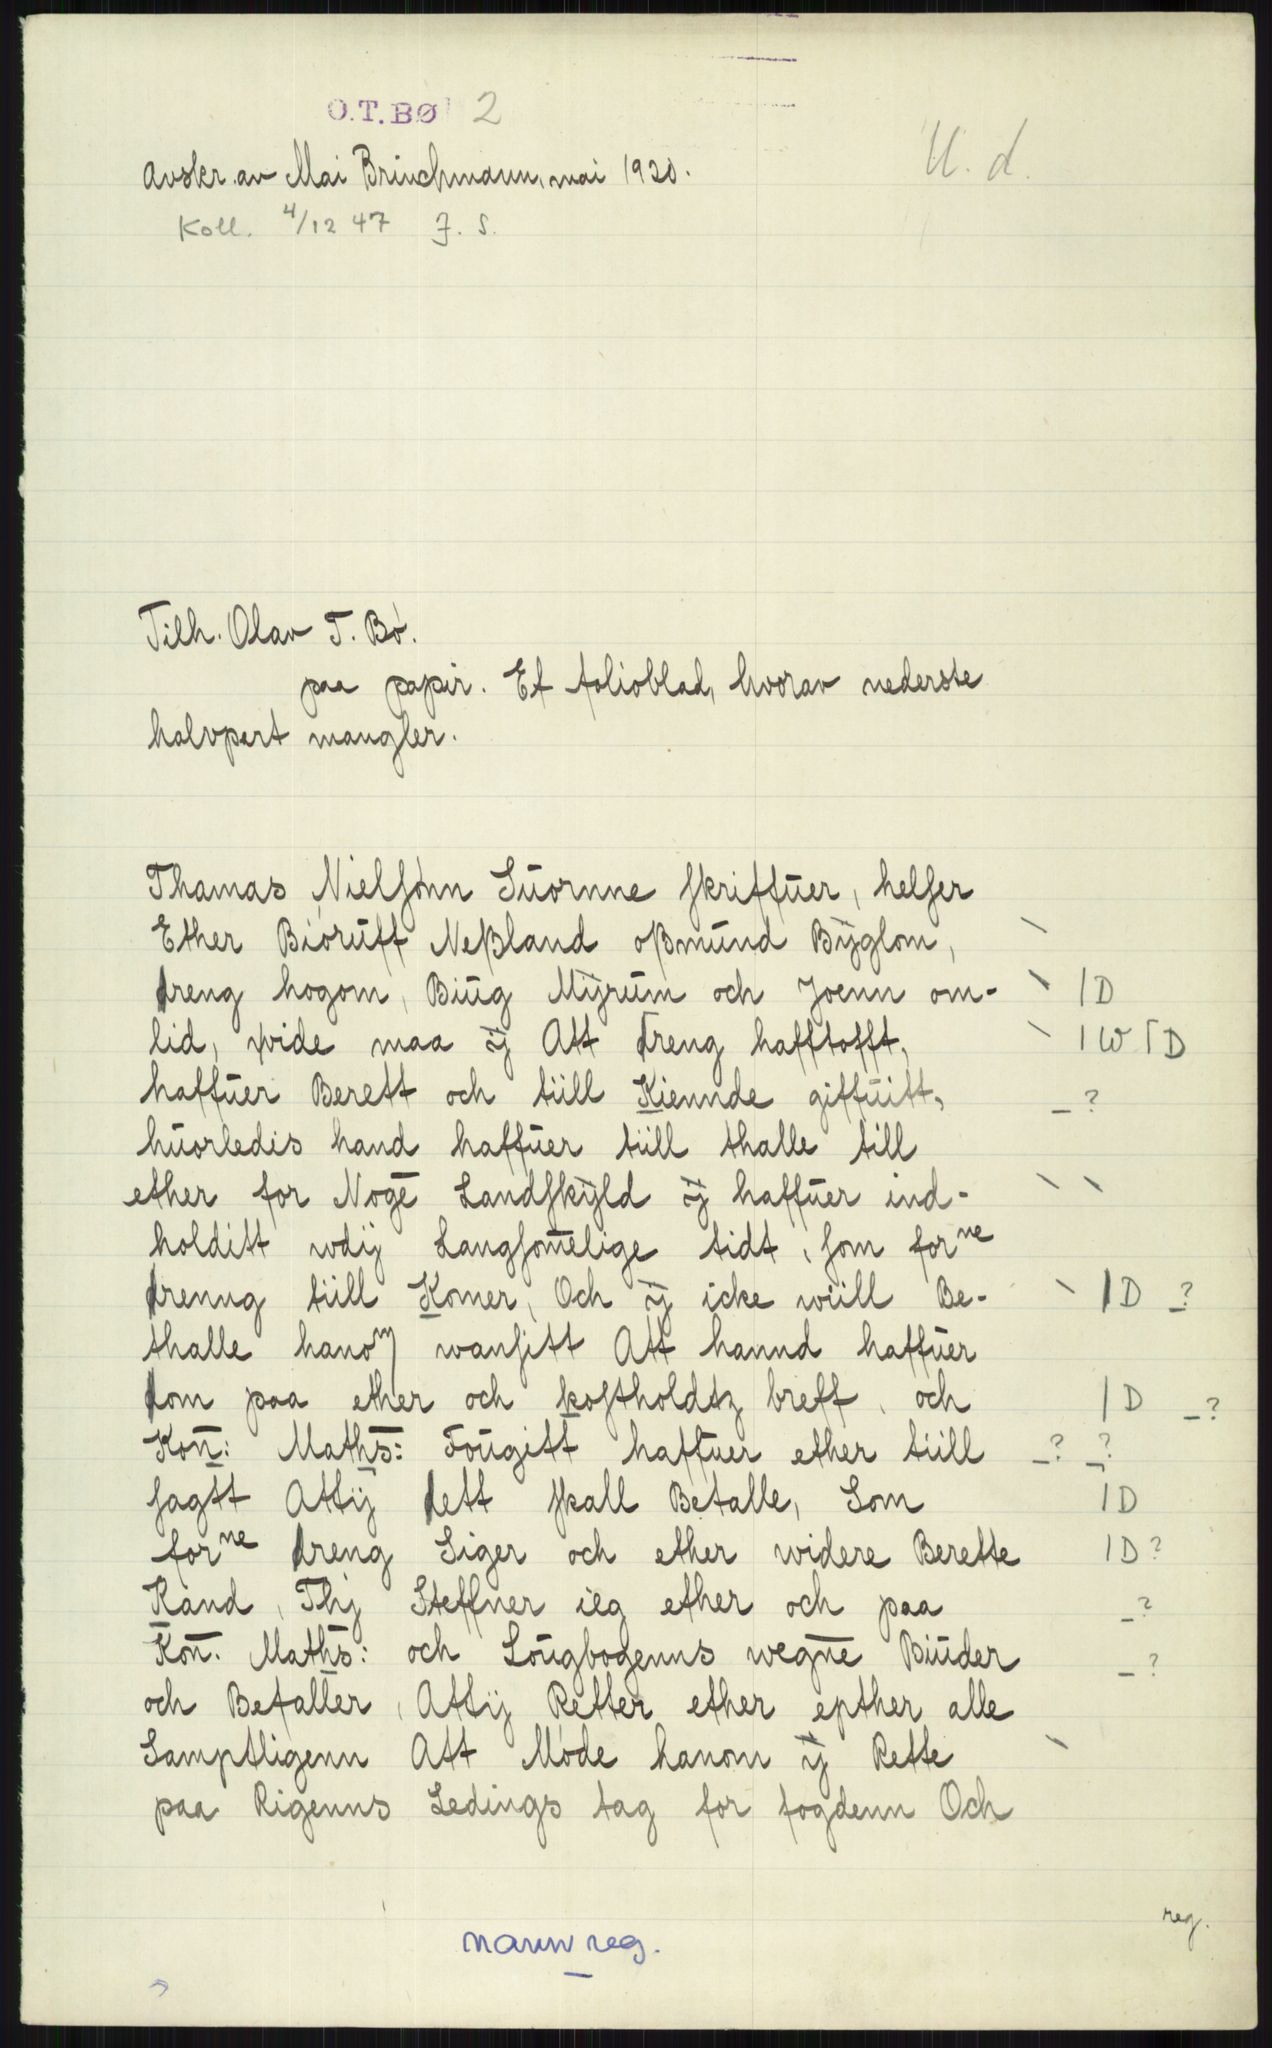 O.T.BØ 2
U. d.
Avskr. av Mai Brinchmann, mai 1920.
Koll. 4/12 47 J. S.
Tilh. Olav T. Bø.
paa papir. Et folioblad, hvorav nederste
halvpart mangler.
Thamas Nielsønn Suornne skriffuer, helser
Ether Biøruff Neßland oßmund Bÿglom, \
dreng hogom, Biug Mÿrum och Joenn om- \ | D
lid, wide maa ÿ Att dreng hafftofft, \ | W ſ D
haffuer Berett och tiill Kiennde giffuitt, – ?
huorledis hand haffuer tiill thalle till
ether for Nogē Landskÿld ÿ haffuer ind- \ \
holditt wdÿ Langsom̄elige tidt, som forne
drenng tiill Komer, Och ÿ icke wiill Be- \ | D – ?
thalle hanom wansitt Att hannd haffuer
dom paa ether och kostholdtz breff, och | D – ?
Kon̄: Mathꝭ: Fougitt haffuer ether tiill – ? – ?
sagtt Attÿ dett skall Betalle, Som | D
forne dreng Siger och ether widere Berette | D ?
Kand, Thj Steffner ieg ether och paa – ?
Kon̄. Maths: och Lougbogenns wegne Biuder – ?
och Befaller, Attÿ Retter ether epther alle
Samptligenn Att Møde hanom ÿ Rette \
paa Rigenns Ledings tag for fogdenn Och
reg.
navnreg.